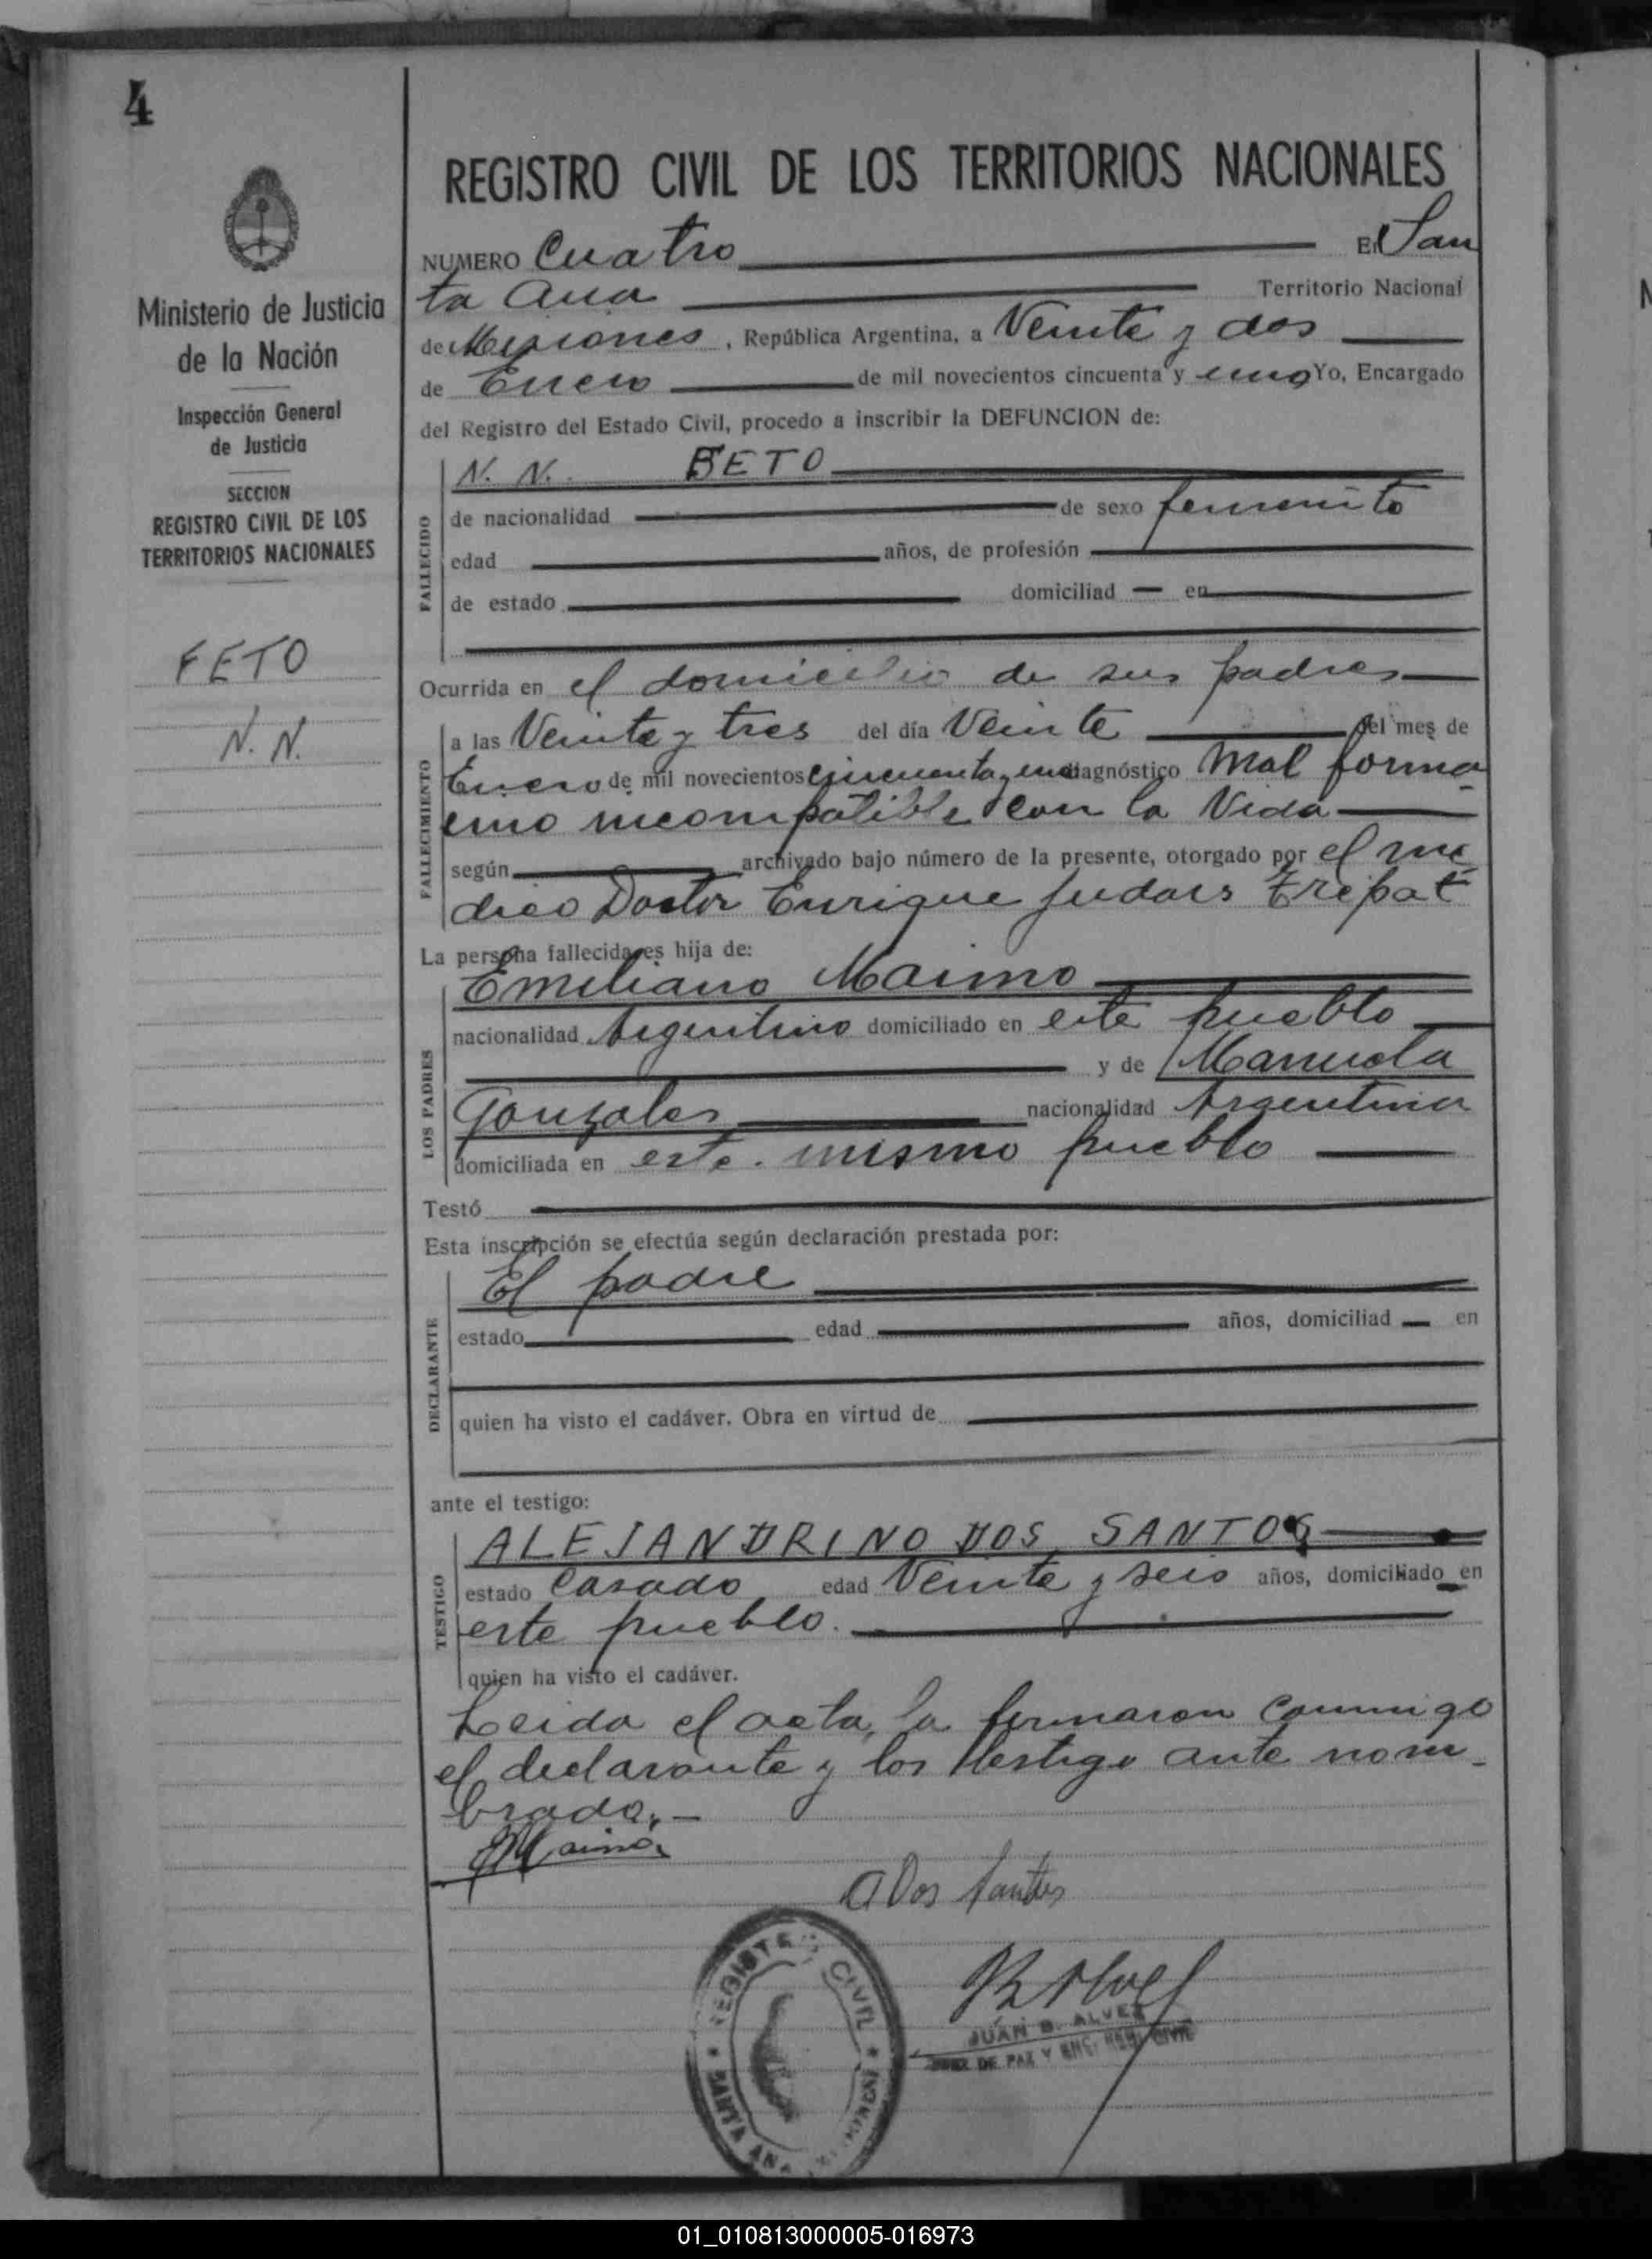 4
Ministerio de Justicia
de la Nación
Inspección General
de Justicia
SECCION
REGISTRO CIVIL DE LOS
TERRITORIOS NACIONALES
FETO
N. N.
REGISTRO CIVIL DE LOS TERRITORIOS NACIONALES
NUMERO Cuatro En San
ta Ana Territorio Nacional
de Misiones, República Argentina, a Veinte y dos
de Enero de mil novecientos cincuenta y uno Yo, Encargado
del Registro del Estado Civil, procedo a inscribir la DEFUNCION de:
FALLECIDO
N. N. FETO
de nacionalidad de sexo femenito
edad años, de profesión
de estado domiciliad — en
Ocurrida en el domicilio de sus padres
FALLECIMIENTO
a las Veinte y tres del día Veinte del mes de
Enero de mil novecientos cincuenta y uno diagnóstico Mal forma
incompatible con la Vida
según archivado bajo número de la presente, otorgado por el mé
dico Doctor Enrique Judars Trepat
La persona fallecida es hija de:
LOS PADRES
Emiliano Maimo
nacionalidad Argentino domiciliado en este pueblo
y de Manuela
Gonzales nacionalidad Argentina
domiciliada en este mismo pueblo
Testó
Esta inscripción se efectúa según declaración prestada por:
DECLARANTE
El padre
estado edad años, domiciliad — en
quien ha visto el cadáver. Obra en virtud de
ante el testigo:
TESTIGO
ALEJANDRINO DOS SANTOS
estado Casado edad Veinte y seis años, domiciliado en
este pueblo.
quien ha visto el cadáver.
Leida el acta, la firmaron conmigo
el declarante y los testigo ante nom-
brado.-
EMaimo
A Dos Santos
REGISTRO CIVIL
SANTA ANA
JUAN B. ALVEZ
JUEZ DE PAZ Y ENC. REG. CIVIL
01_010813000005-016973